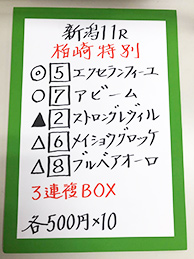 新潟11R
柏崎特別
◎5エクセランフィーユ
○7アビーム
▲2ストロングレヴィル
△6メイショウグロッケ
△8ブルベアオーロ
3連複BOX
各500円×10